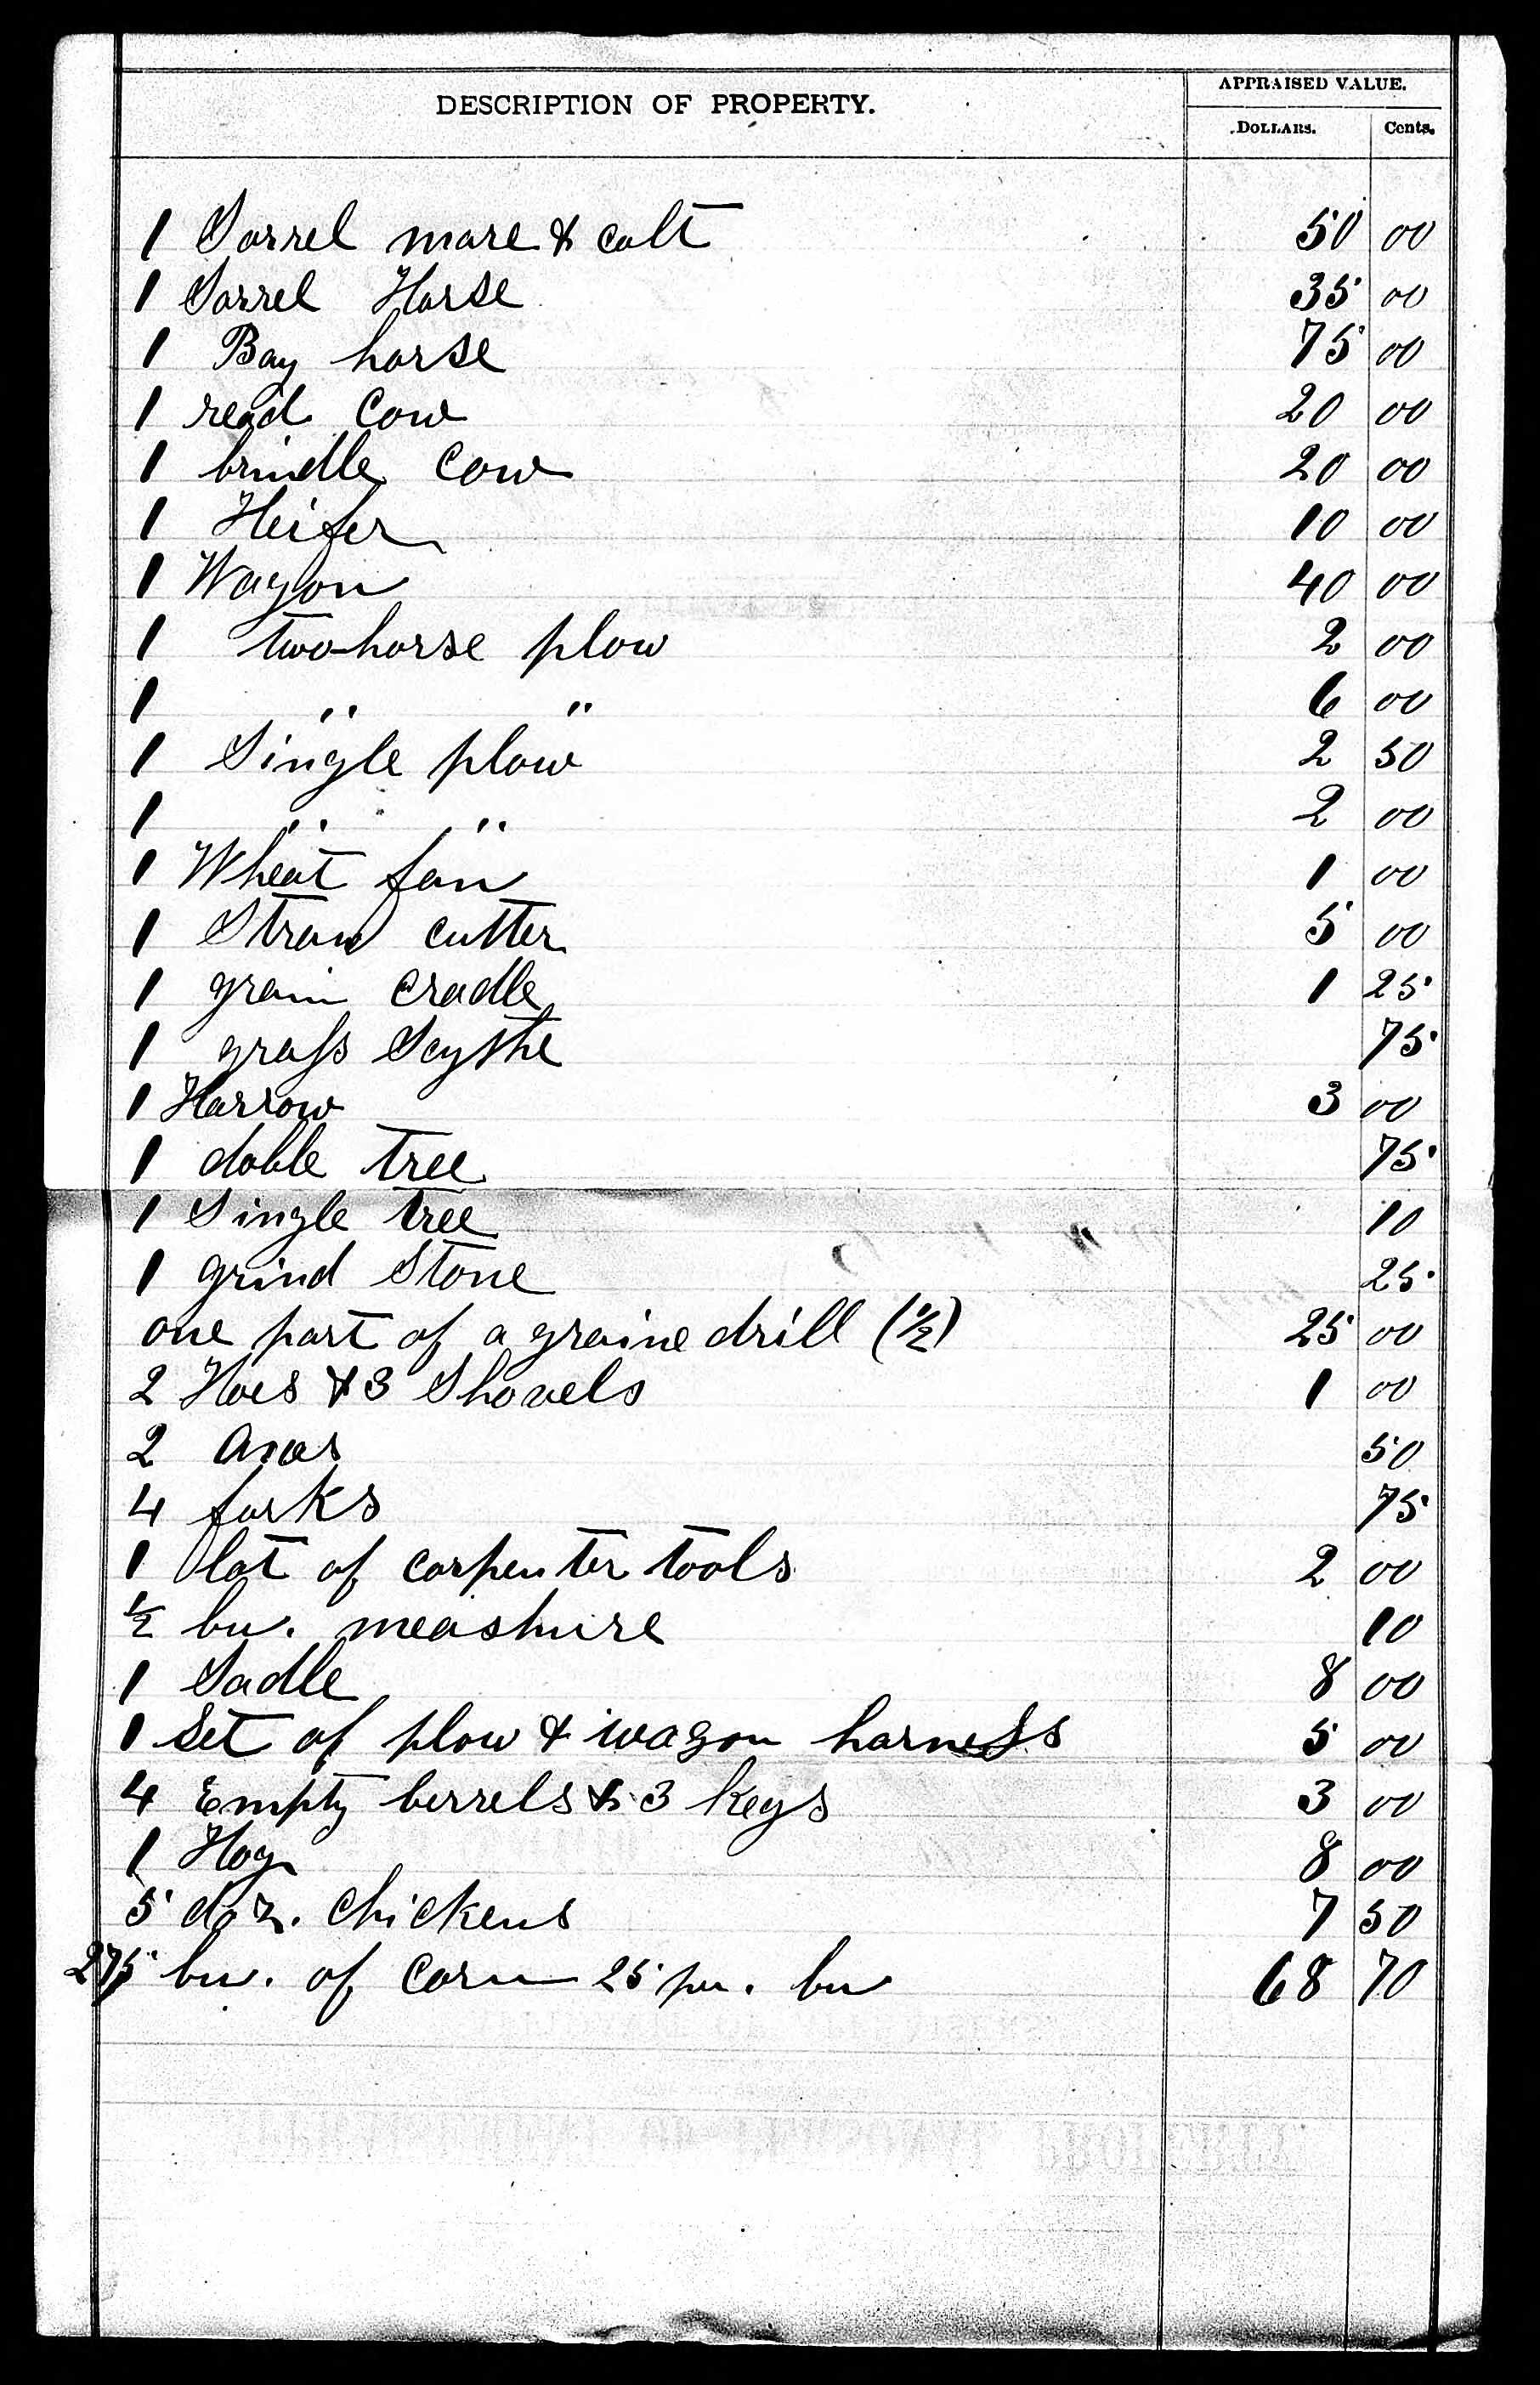 DESCRIPTION OF PROPERTY. APPRAISED VALUE.
DOLLARS. Cents.
1 Sorrel mare & colt 50 00
1 Sorrel Horse 35 00
1 Bay horse 75 00
1 read Cow 20 00
1 brindle Cow 20 00
1 Heifer 10 00
1 Wagon 40 00
1 two-horse plow 2 00
1 " " 6 00
1 Single plow 2 50
1 " " 2 00
1 Wheat fan 1 00
1 Straw cutter 5 00
1 grain Cradle 1 25
1 grass Scythe 75
1 Harrow 3 00
1 doble tree 75
1 Single tree 10
1 grind Stone 25
one part of a graine drill (1/2) 25 00
2 Hoes & 3 Shovels 1 00
2 Axes 50
4 forks 75
1 lot of carpenter tools 2 00
1/2 bu. meashure 10
1 Sadle 8 00
1 Set of plow & wagon harness 5 00
4 Empty berrels & 3 kegs 3 00
1 Hog 8 00
5 doz. Chickens 7 50
275 bu. of Corn 25 per. bu 68 70